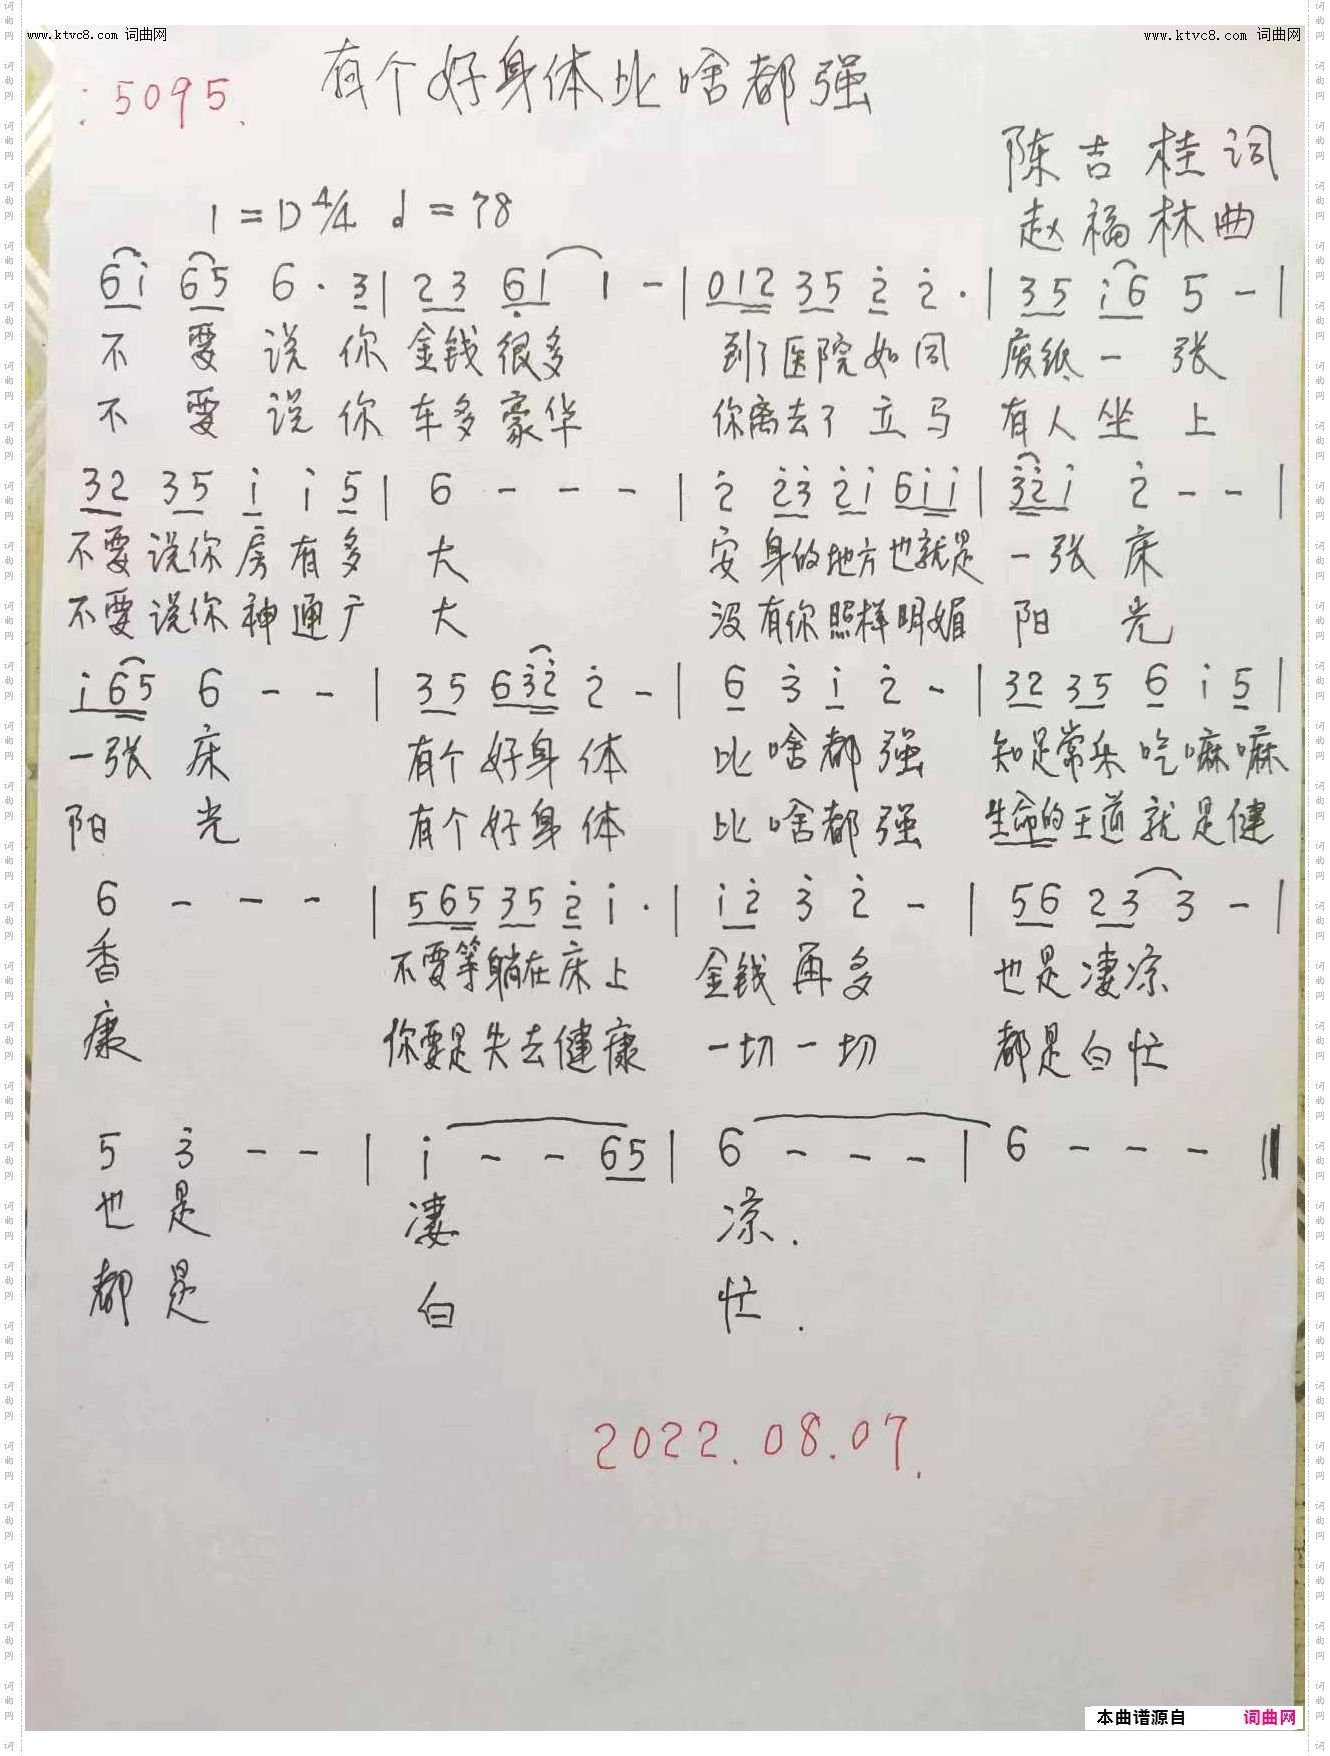 www.ktvc8.com 词曲网
www.ktvc8.com 词曲网
:5095.
有个好身体比啥都强
陈吉桂词
1=D 4/4 d=78
赵福林曲
6i 65 6·3| 23 61 1 -| 012 35 2 2·| 35 i6 5 -|
不要说你金钱很多 到了医院如同 废纸一张
不要说你车多豪华 你离去了立马 有人坐上
32 35 i i 5| 6 - - -| 2 23 2i 6ii| 32i 2 - -|
不要说你房有多 大 安身的地方也就是 一张床
不要说你神通广 大 没有你照样明媚 阳光
i65 6 - -| 35 632 2 -| 6 3 i 2 -| 32 35 6 i 5|
一张床 有个好身体 比啥都强 知足常乐吃嘛嘛
阳光 有个好身体 比啥都强 生命的王道就是健
6 - - -| 565 35 2 i·| i2 3 2 -| 56 23 3 -|
香 不要等躺在床上 金钱再多 也是凄凉
康 你要是失去健康 一切一切 都是白忙
5 3 - -| i - - 65| 6 - - -| 6 - - -‖
也是 凄 凉.
都是 白 忙.
2022.08.07.
本曲谱源自 词曲网